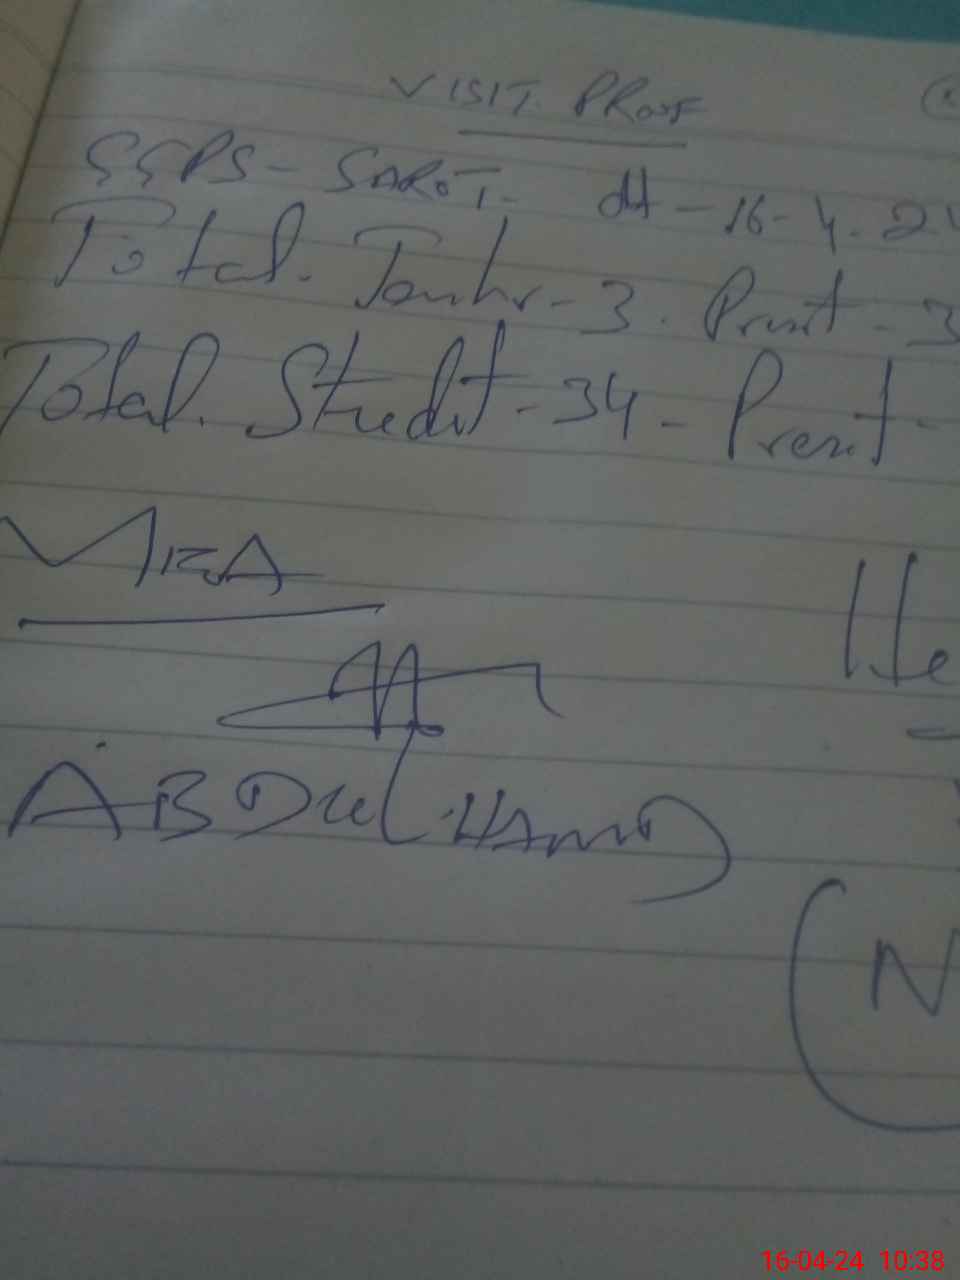 VISIT PROOF
GGPS - SAROT. dt - 16-4.24
Total. Teachr - 3. Presnt - 3
Total. Studet - 34 - Presnt -
MEA
He
ABDUL HAMID
N
16-04-24 10:38